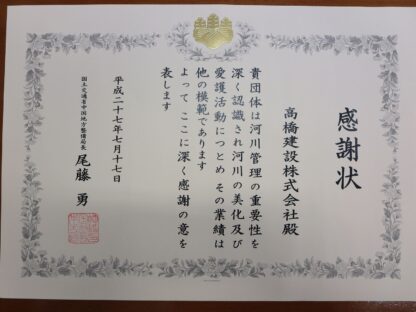 感謝状
高橋建設株式会社殿
貴団体は河川管理の重要性を
深く認識され河川の美化及び
愛護活動につとめ その業績は
他の模範であります
よって ここに深く感謝の意を
表します
平成二十七年七月十七日
国土交通省中国地方整備局長 尾藤 勇